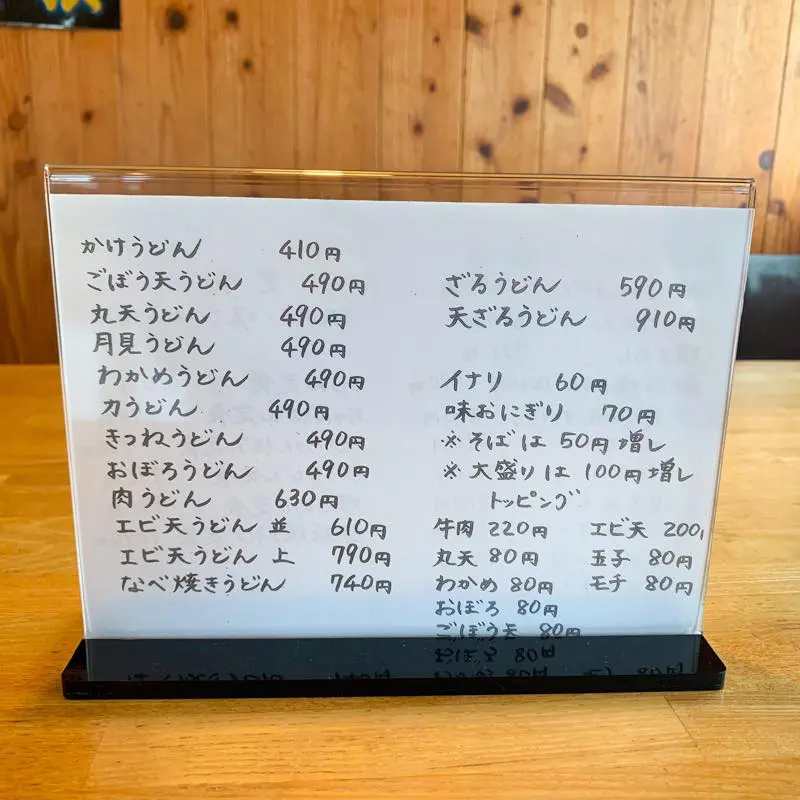 かけうどん 410円
ごぼう天うどん 490円
丸天うどん 490円
月見うどん 490円
わかめうどん 490円
力うどん 490円
きつねうどん 490円
おぼろうどん 490円
肉うどん 630円
エビ天うどん 並 610円
エビ天うどん 上 790円
なべ焼きうどん 740円
ざるうどん 590円
天ざるうどん 910円
イナリ 60円
味おにぎり 70円
※そばは 50円増し
※大盛りは 100円増し
トッピング
牛肉 220円 エビ天 200
丸天 80円 玉子 80円
わかめ 80円 モチ 80円
おぼろ 80円
ごぼう天 80円